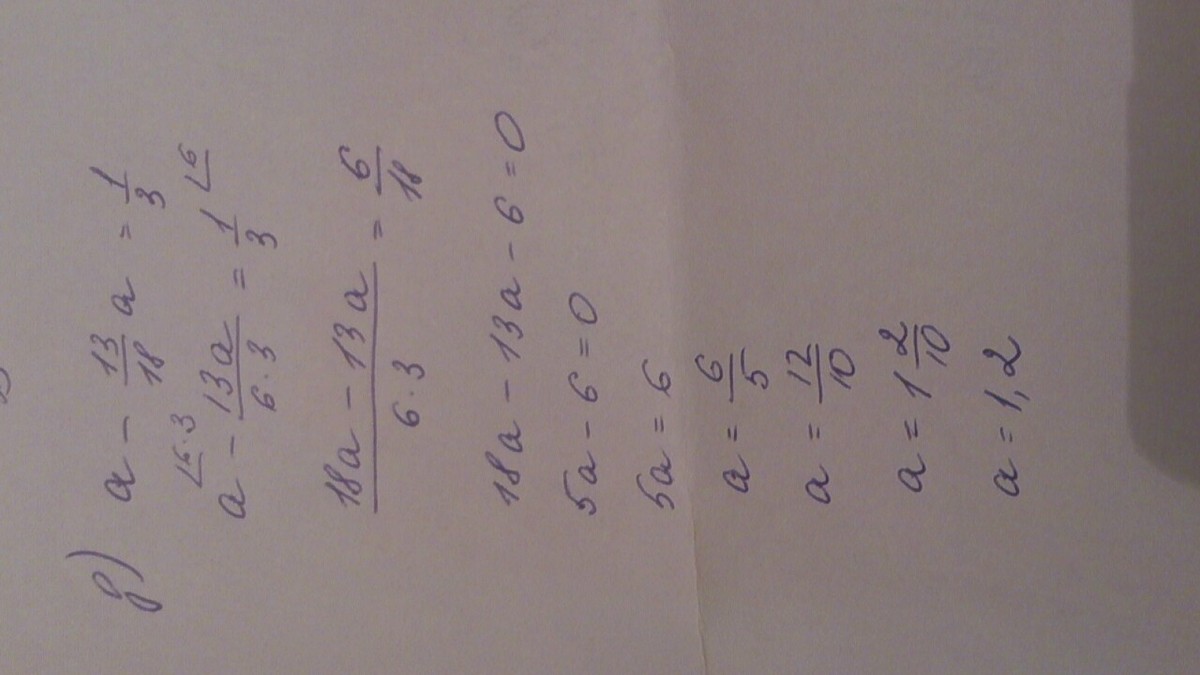 д) a - 13/18 a = 1/3
a - 13a/6·3 = 1/3 ∟6·3 ∟6
18a - 13a/6·3 = 6/18
18a - 13a - 6 = 0
5a - 6 = 0
5a = 6
a = 6/5
a = 12/10
a = 1 2/10
a = 1,2